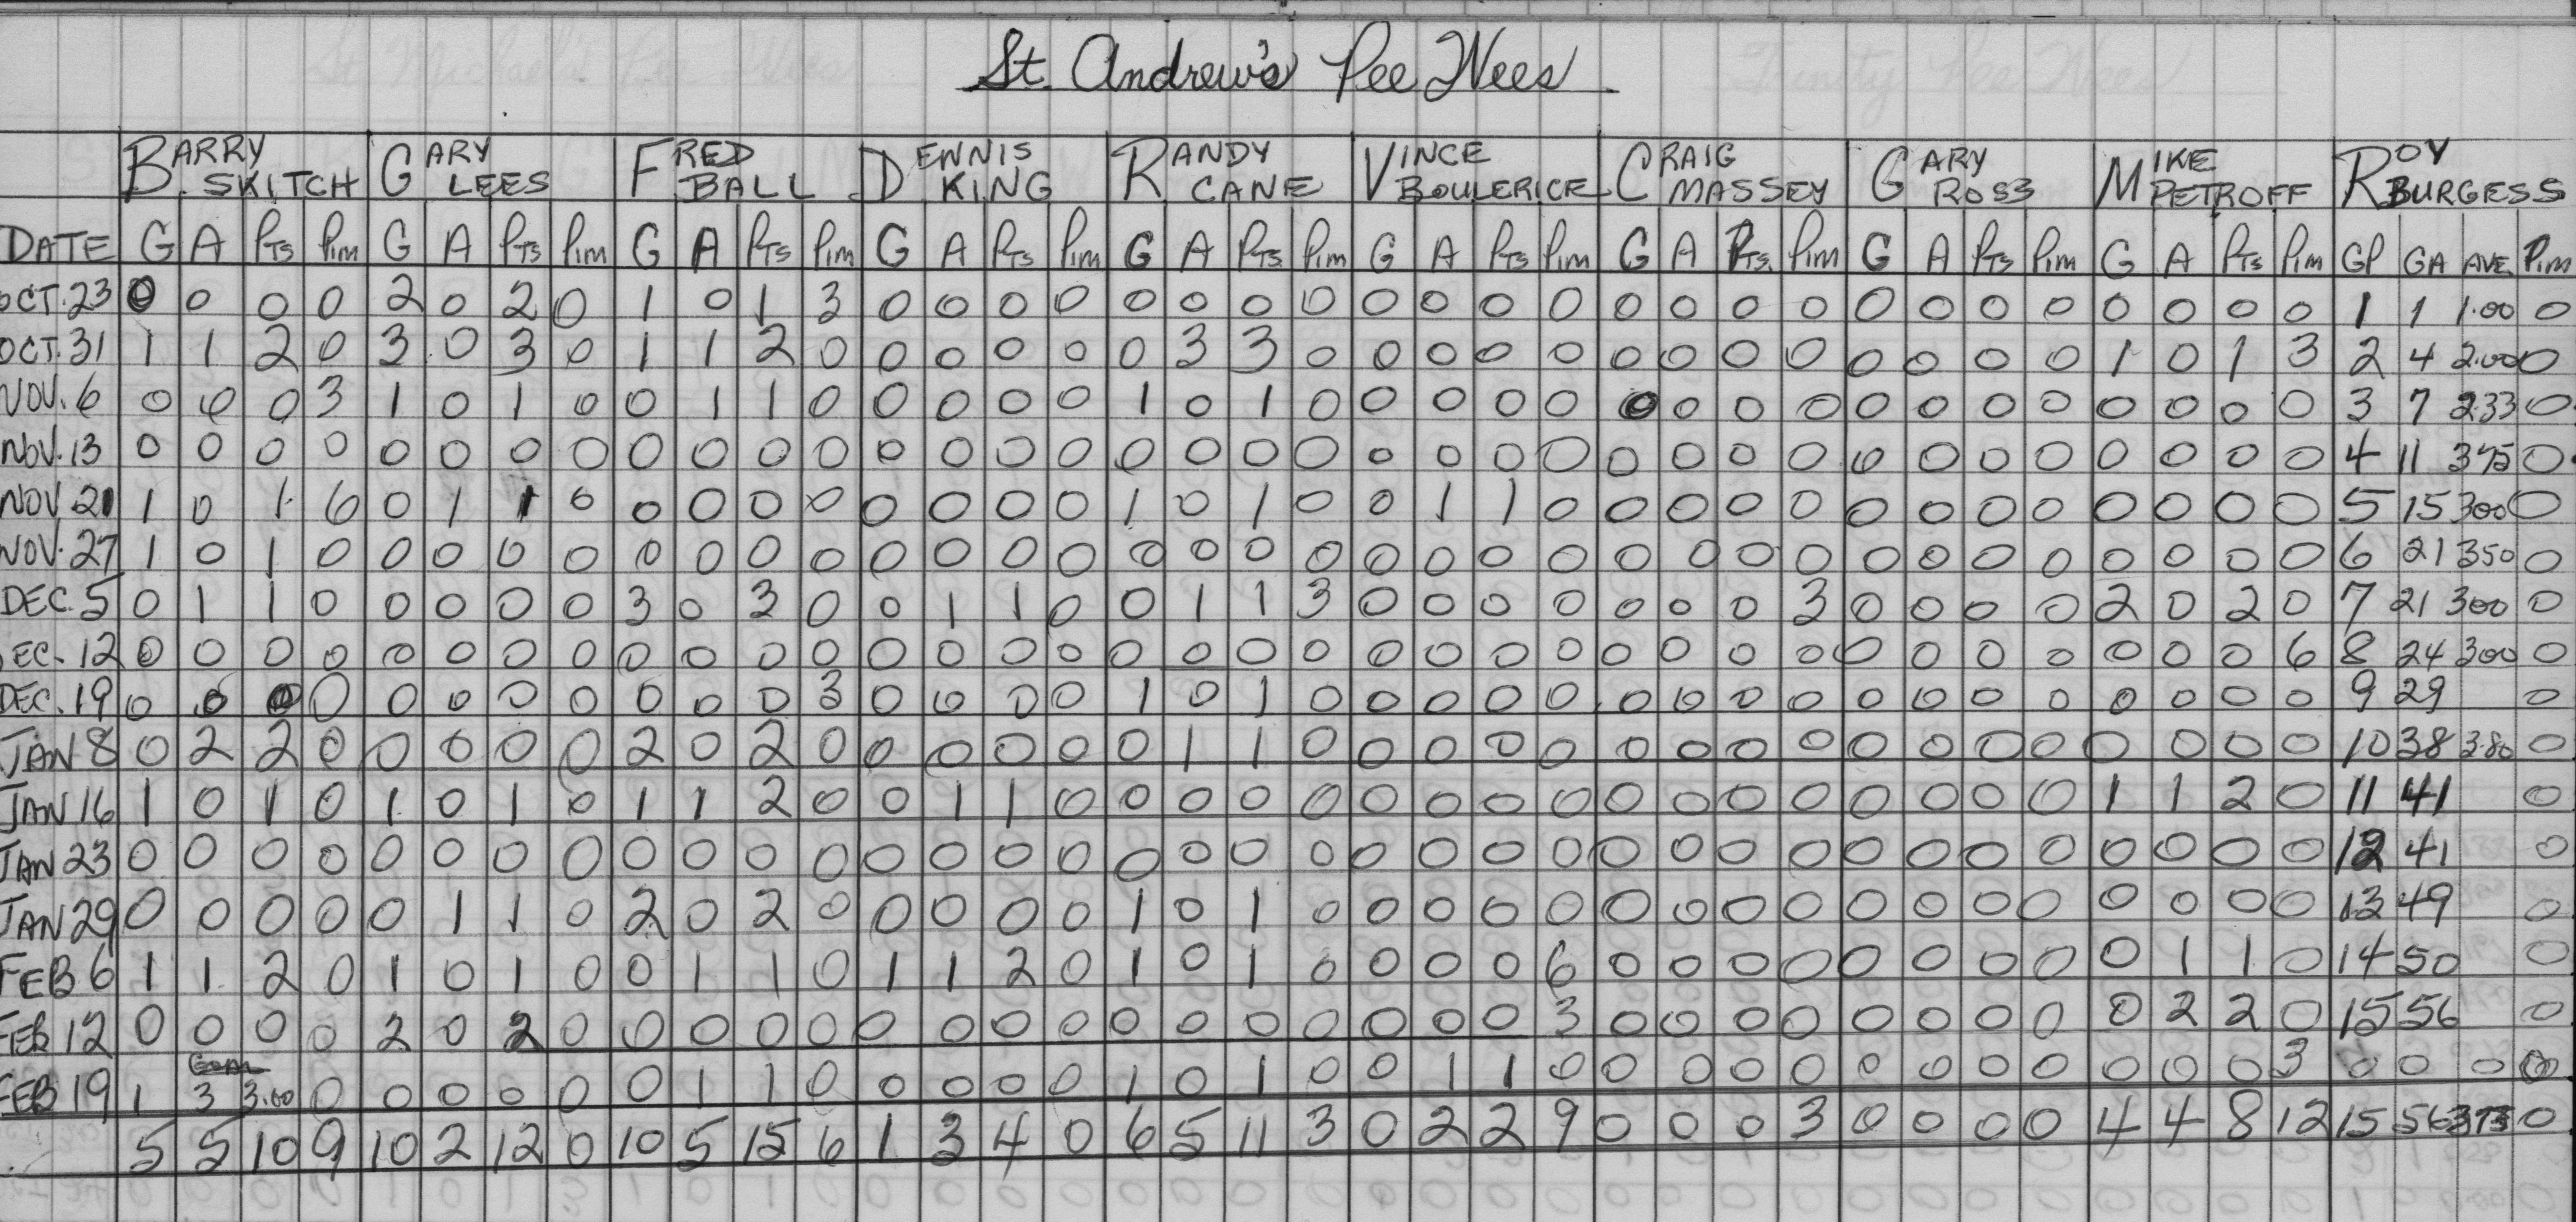 St. Andrew's Pee Wees
BARRY SKITCH GARY LEES FRED BALL DENNIS KING RANDY CANE VINCE BOULERICE CRAIG MASSEY GARY ROSS MIKE PETROFF ROY BURGESS
DATE G A Pts Pim G A Pts Pim G A Pts Pim G A Pts Pim G A Pts Pim G A Pts Pim G A Pts. Pim G A Pts Pim G A Pts Pim GP GA AVE Pim
OCT. 23 0 0 0 0 2 0 2 0 1 0 1 3 0 0 0 0 0 0 0 0 0 0 0 0 0 0 0 0 0 0 0 0 0 0 0 0 1 1 1.00 0
OCT. 31 1 1 2 0 3 0 3 0 1 1 2 0 0 0 0 0 0 3 3 0 0 0 0 0 0 0 0 0 0 0 0 0 1 0 1 3 2 4 2.00 0
NOV. 6 0 0 0 3 1 0 1 0 0 1 1 0 0 0 0 0 1 0 1 0 0 0 0 0 0 0 0 0 0 0 0 0 0 0 0 0 3 7 2.33 0
NOV. 13 0 0 0 0 0 0 0 0 0 0 0 0 0 0 0 0 0 0 0 0 0 0 0 0 0 0 0 0 0 0 0 0 0 0 0 0 4 11 375 0
NOV. 21 1 0 1 6 0 1 1 0 0 0 0 0 0 0 0 0 1 0 1 0 0 1 1 0 0 0 0 0 0 0 0 0 0 0 0 0 5 15 300 0
NOV. 27 1 0 1 0 0 0 0 0 0 0 0 0 0 0 0 0 0 0 0 0 0 0 0 0 0 0 0 0 0 0 0 0 0 0 0 0 6 21 350 0
DEC. 5 0 1 1 0 0 0 0 0 3 0 3 0 0 1 1 0 0 1 1 3 0 0 0 0 0 0 0 3 0 0 0 0 2 0 2 0 7 21 300 0
DEC. 12 0 0 0 0 0 0 0 0 0 0 0 0 0 0 0 0 0 0 0 0 0 0 0 0 0 0 0 0 0 0 0 0 0 0 0 6 8 24 300 0
DEC. 19 0 0 0 0 0 0 0 0 0 0 0 3 0 0 0 0 1 0 1 0 0 0 0 0 0 0 0 0 0 0 0 0 0 0 0 0 9 29 0
JAN 8 0 2 2 0 0 0 0 0 2 0 2 0 0 0 0 0 0 1 1 0 0 0 0 0 0 0 0 0 0 0 0 0 0 0 0 0 10 38 3.80 0
JAN 16 1 0 1 0 1 0 1 0 1 1 2 0 0 1 1 0 0 0 0 0 0 0 0 0 0 0 0 0 0 0 0 0 1 1 2 0 11 41 0
JAN 23 0 0 0 0 0 0 0 0 0 0 0 0 0 0 0 0 0 0 0 0 0 0 0 0 0 0 0 0 0 0 0 0 0 0 0 0 12 41 0
JAN 29 0 0 0 0 0 1 1 0 2 0 2 0 0 0 0 0 1 0 1 0 0 0 0 0 0 0 0 0 0 0 0 0 0 0 0 0 13 49 0
FEB 6 1 1 2 0 1 0 1 0 0 1 1 0 1 1 2 0 1 0 1 0 0 0 0 6 0 0 0 0 0 0 0 0 0 1 1 0 14 50 0
FEB 12 0 0 0 0 2 0 2 0 0 0 0 0 0 0 0 0 0 0 0 0 0 0 0 3 0 0 0 0 0 0 0 0 0 2 2 0 15 56 0
FEB 19 1 3 3.00 0 0 0 0 0 0 1 1 0 0 0 0 0 1 0 1 0 0 1 1 0 0 0 0 0 0 0 0 0 0 0 0 3 0 0 0 0
5 5 10 9 10 2 12 0 10 5 15 6 1 3 4 0 6 5 11 3 0 2 2 9 0 0 0 3 0 0 0 0 4 4 8 12 15 56 373 0